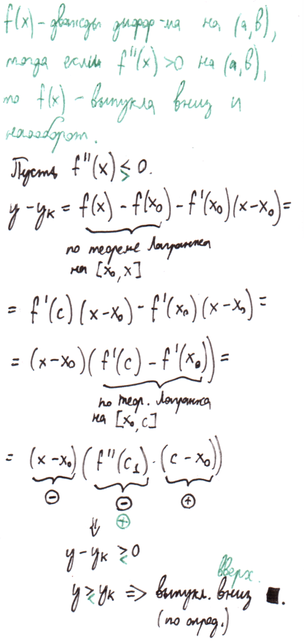 f(x) - дважды диффер-ма на (a,b),
тогда если f''(x) > 0 на (a,b),
то f(x) - выпукла вниз и
наоборот.
Пусть f''(x) ≤ 0.
>
y - yк = f(x) - f(x₀) - f'(x₀)(x-x₀) =
по теореме Лагранжа
на [x₀, x]
= f'(c)(x-x₀) - f'(x₀)(x-x₀) =
= (x-x₀)(f'(c) - f'(x₀)) =
по теор. Лагранжа
на [x₀, c]
= (x-x₀)(f''(c₁)·(c-x₀))
⊖ ⊖ ⊕
⊕
⇓
y - yк ≥ 0
≤
вверх.
y ≥ yк => выпукл. вниз ■.
≤
(по опред.)